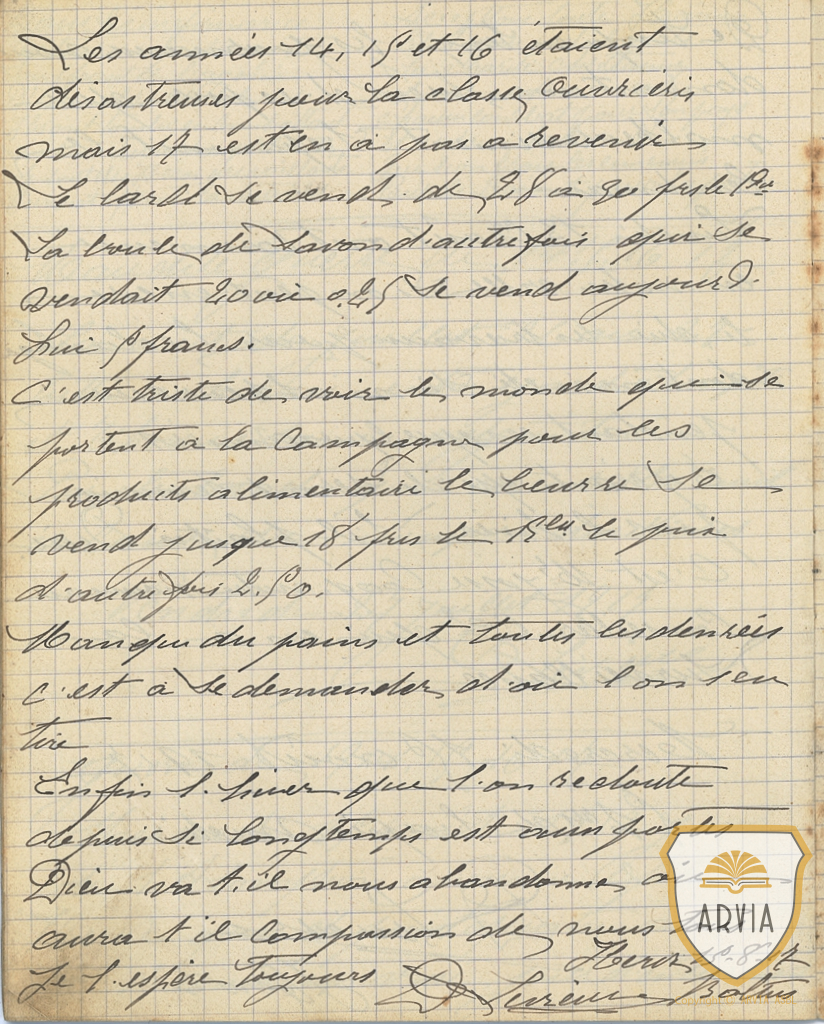 Les années 14, 15 et 16 étaient
désastreuses pour la classe ouvrière
mais 17 est en a pas a revenir
Le lard se vend de 28 à 30 frs le
La boule de savon d'autrefois qui se
vendait 20 ou 0.25 se vend aujourd'
hui 5 francs.
C'est triste de voir le monde qui se
portent à la Campagne pour les
produits alimentaire le beurre se
vend jusque 18 frs le le prix
d'autrefois 2.50.
Manque du pains et toutes les denrées
c'est à se demander d'où l'on s'en
tire
Enfin l'hiver que l'on redoute
depuis si longtemps est aux portes
Dieu va t'il nous abandonner
aura t il compassion de nous
Je l'espère toujours
ARVIA